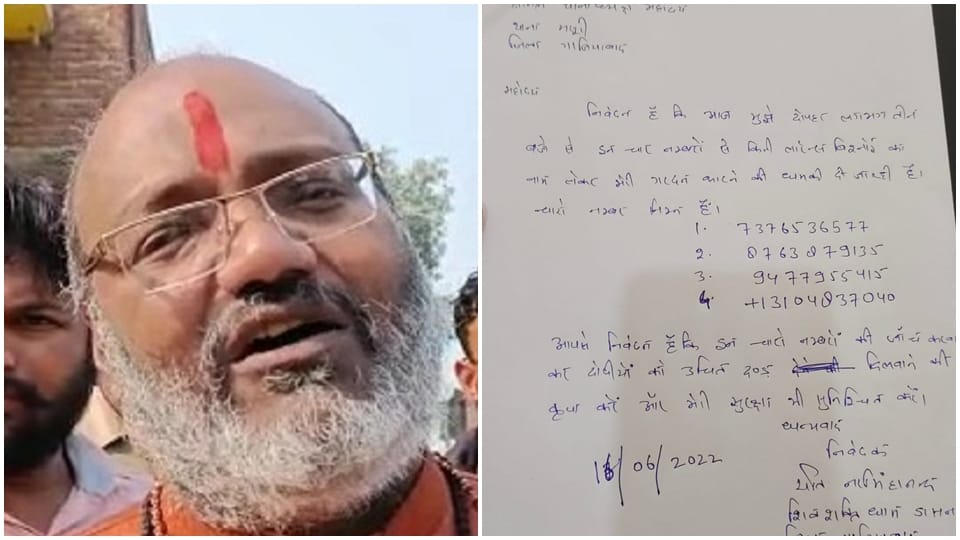 थाना मसूरी
जिला गाजियाबाद
महोदय
निवेदन है कि आज मुझे दोपहर लगभग तीन
बजे से इन चार नम्बरों से किसी लारेन्स बिश्नोई का
नाम लेकर मेरी गरदन काटने की धमकी दी जा रही है।
चारो नम्बर निम्न हैं।
1. 7376536577
2. 8763879135
3. 9477955415
4. +13104837040
आपसे निवेदन है कि इन चारो नम्बरों की जाँच
कर दोषीयों को उचित दण्ड दिलवाने की
कृपा करें और मेरी सुरक्षा भी सुनिश्चित करें।
धन्यवाद
निवेदक
16/06/2022
यति नरसिंहानन्द
शिवशक्ति धाम डासना